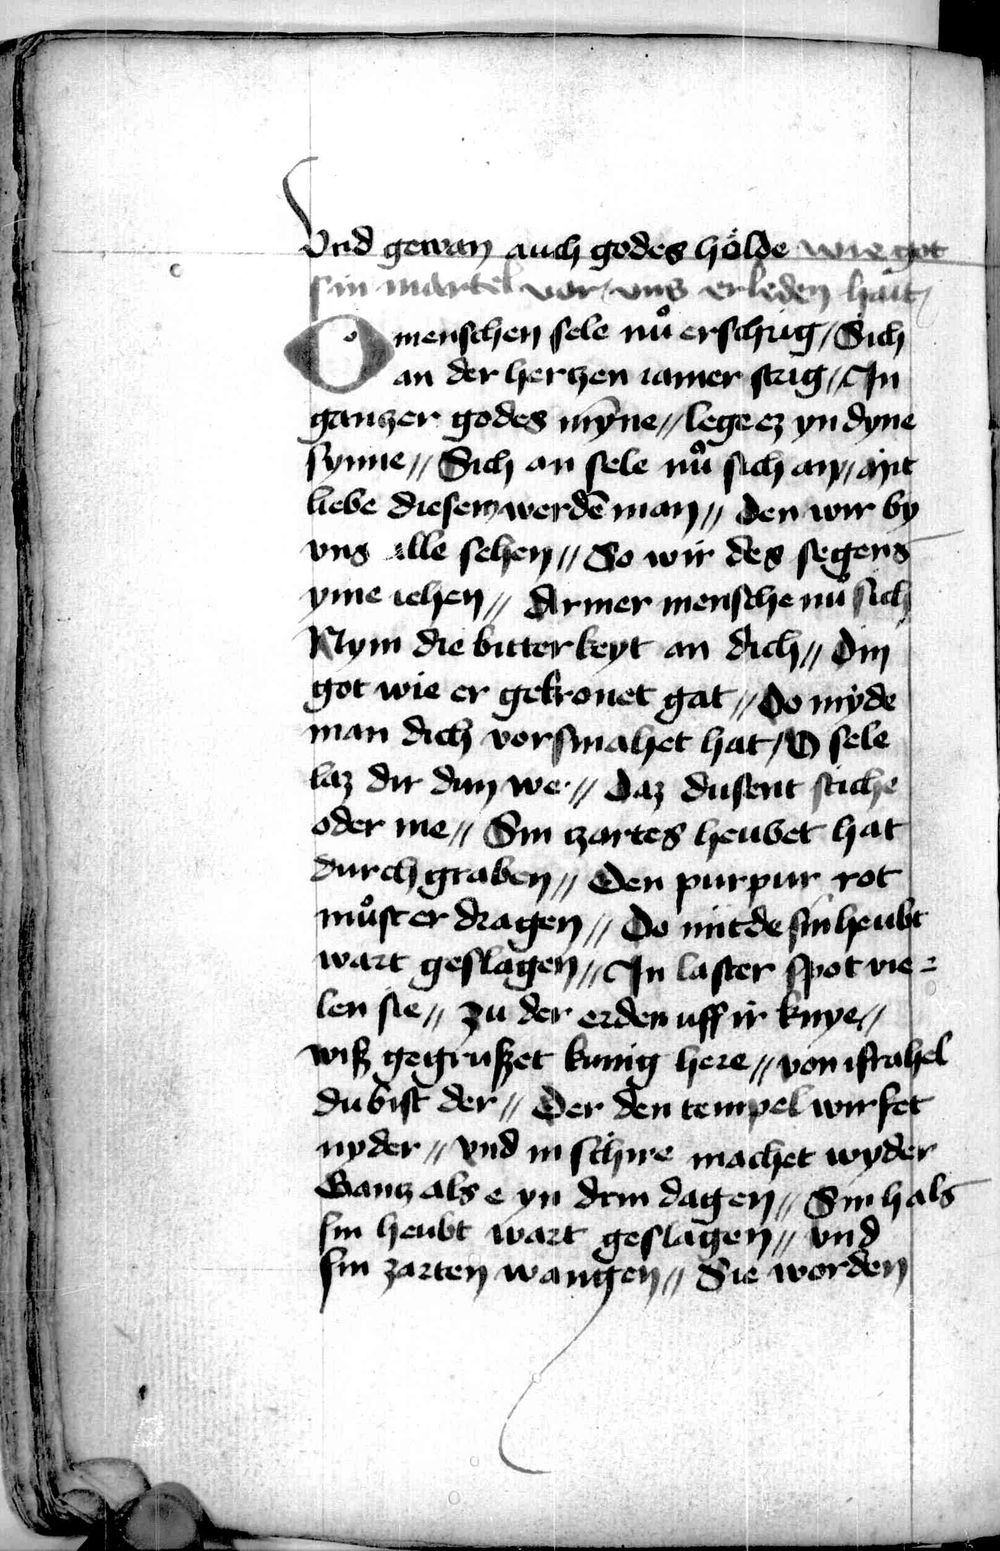 Vnd gewan auch godes hölde wie got
sin martel vor vns erleden hait
O menschen sele nů erschrig / Sich
an der hertzen iamer strig // In
gantzer godes mȳne // lege ez yn dyne
synne // Sich an sele nů sich an // mit
liebe diesen werdē man // Den wir by
vns alle sehen // So wir des segens
yme iehen // Armer mensche nů sich
Nym die bitterkeyt an dich // Din
got wie er gekronet gat // Do myde
man dich vorsmahet hat / O sele
laz dir dun we // Daz dusent stiche
oder me // Sin tzartes heubet hat
durch graben // Den purpur rot
můst er dragen // Do mitde sin heubt
wart geslagen // In laster spot vie =
len sie // Zu der erden uff ir knye //
wiß gegrußet kunig here // von israhel
du bist der // Der den tempel wirfet
nyder // vnd in schire machet wyder
Gantz als e yn drin dagen // Sin hals
sin heubt wart geslagen // vnd
sin zarten wangen // Sie worden